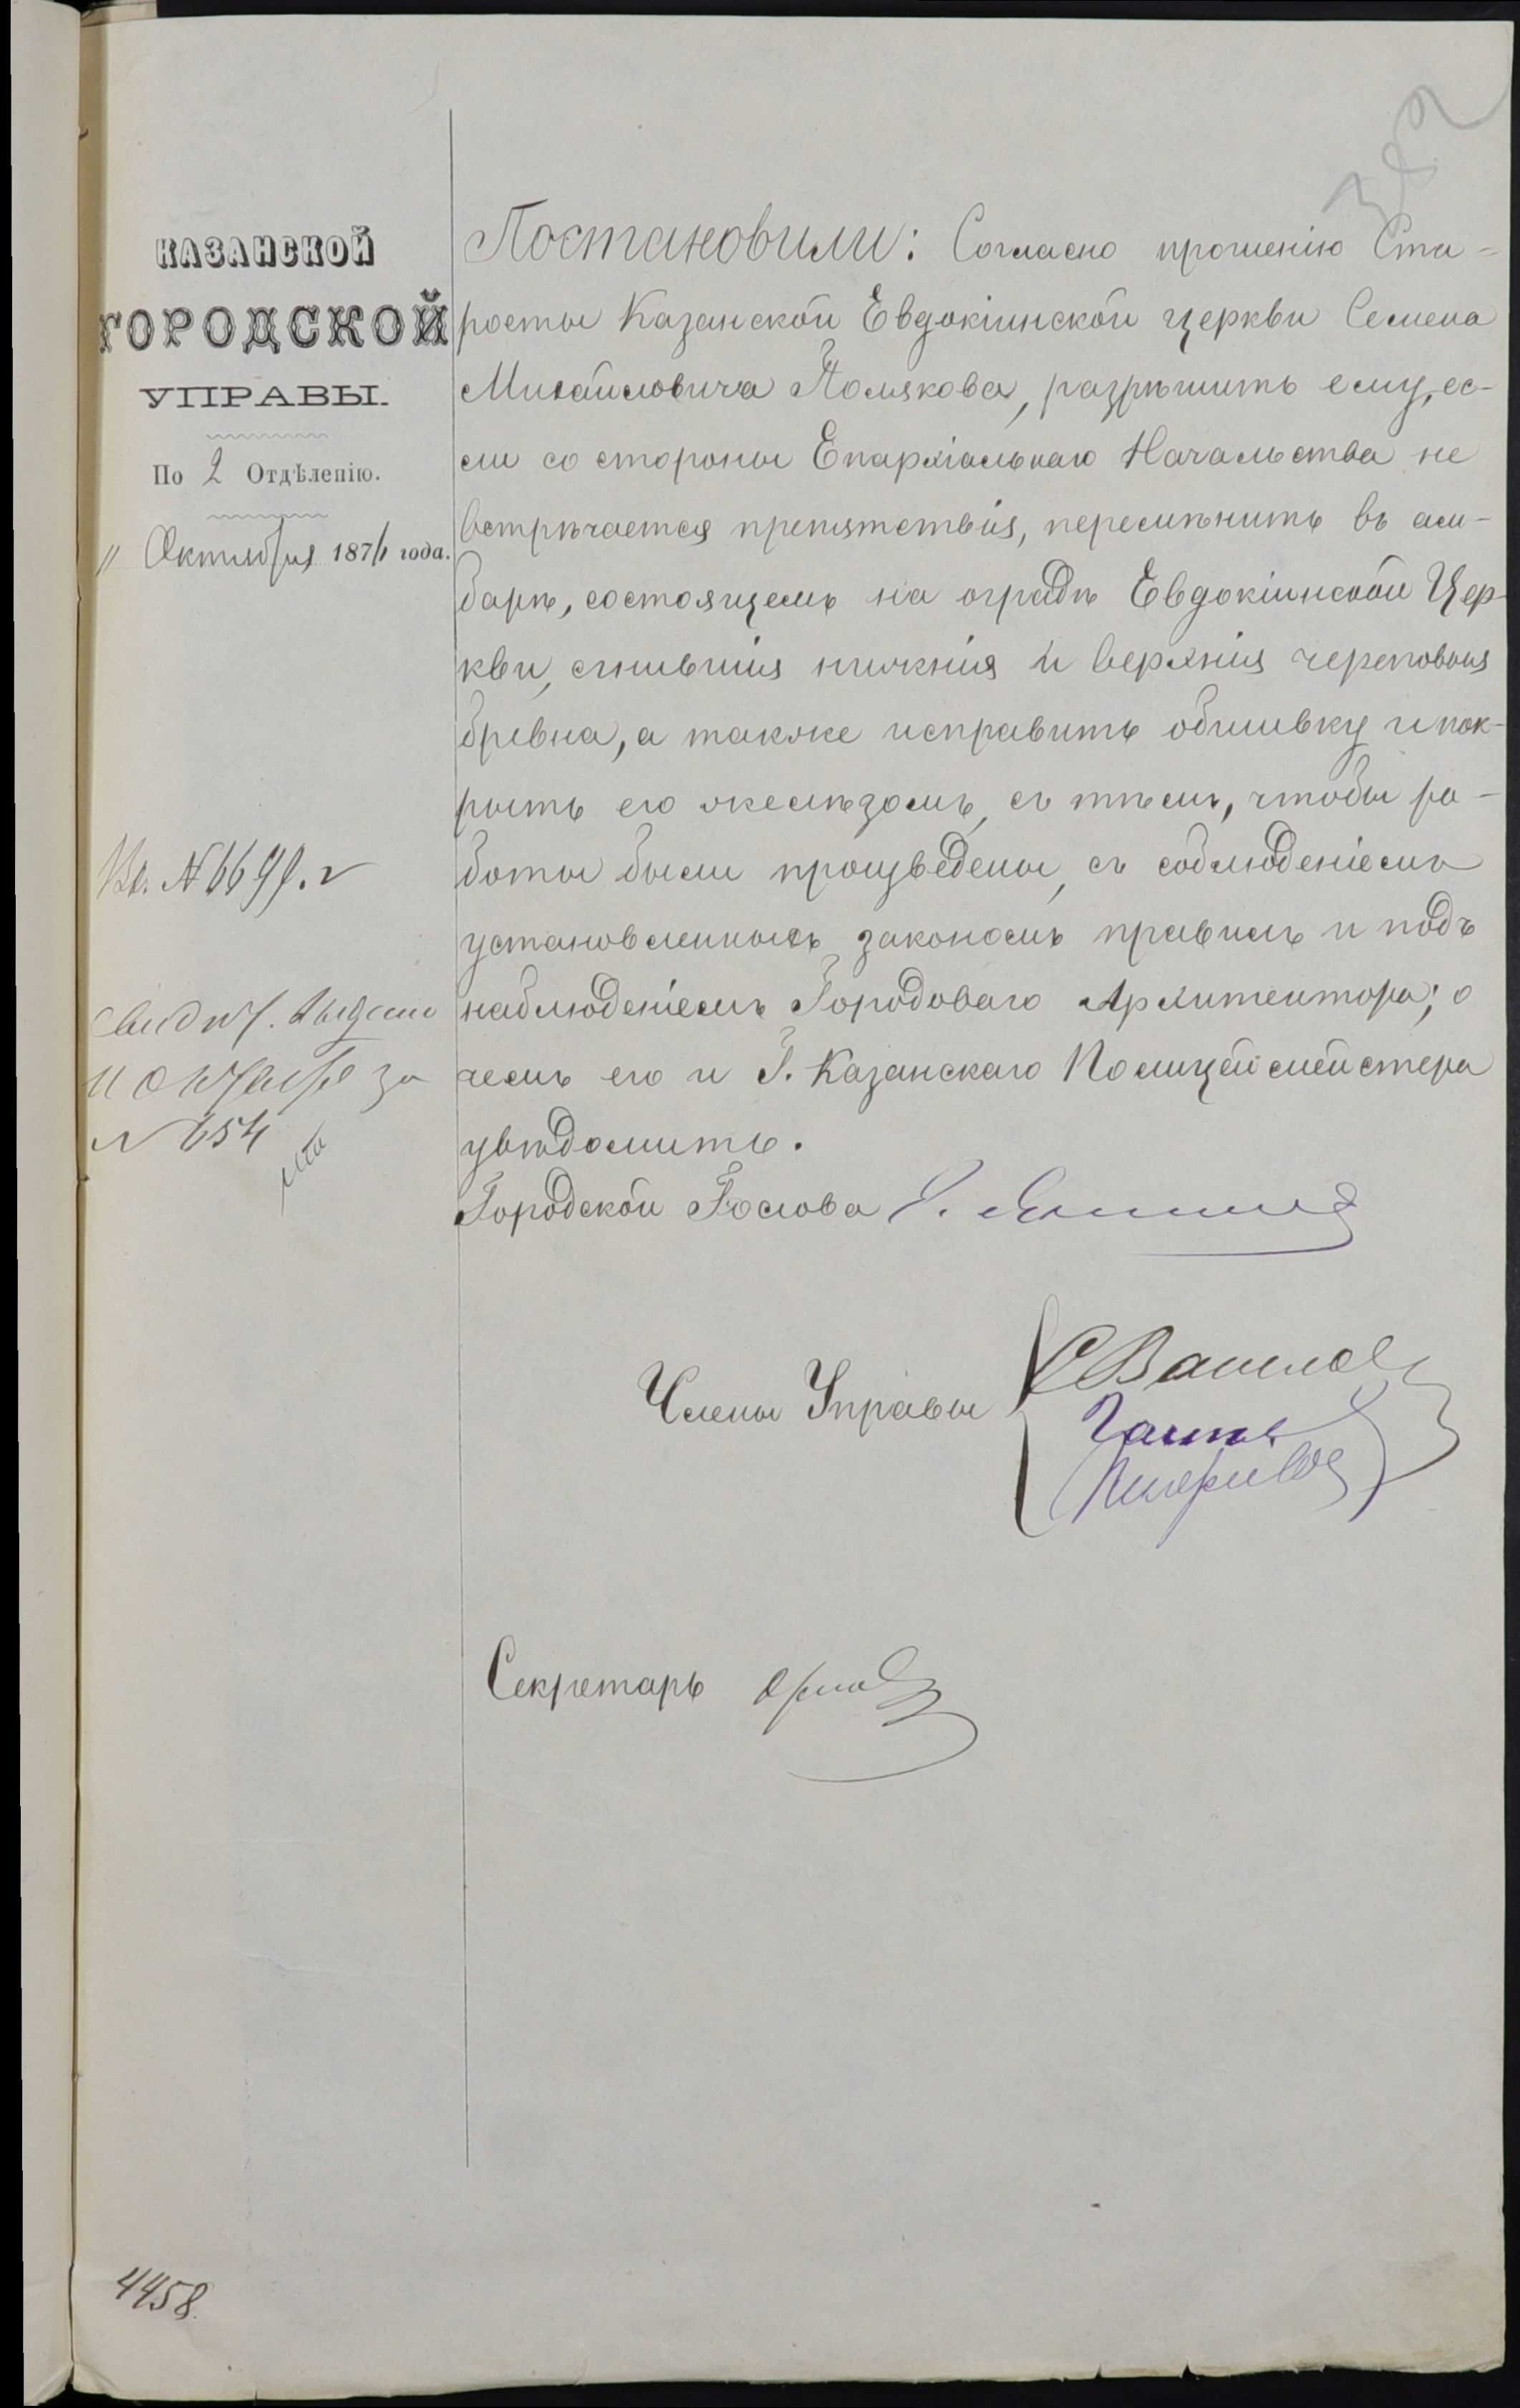 382
КАЗАНСКОЙ
ГОРОДСКОЙ
УПРАВЫ.
По 2 Отдѣленію.
" Октября 1871 года.
Вх. № 6699.
за
№ 654
4458
Постановили: Согласно прошенію Ста-
росты Казанской Евдокіинской церкви Семена
Михайловича Полякова, разрѣшить ему, ес-
ли со стороны Епархіальнаго Начальства не
встрѣчается препятствія, перемѣнить въ ам-
барѣ, состоящемъ на оградѣ Евдокіинской Цер-
кви, сгнившія нижнія и верхнія череповыя
бревна, а также исправить обшивку и пок-
рыть его желѣзомъ, съ тѣмъ, чтобы ра-
боты были произведены, съ соблюденіемъ
установленныхъ закономъ правилъ и подъ
наблюденіемъ Городоваго Архитектора; о
чемъ его и Г. Казанскаго Полицеймейстера
увѣдомить.
Городской Голова
Члены Управы
Секретарь